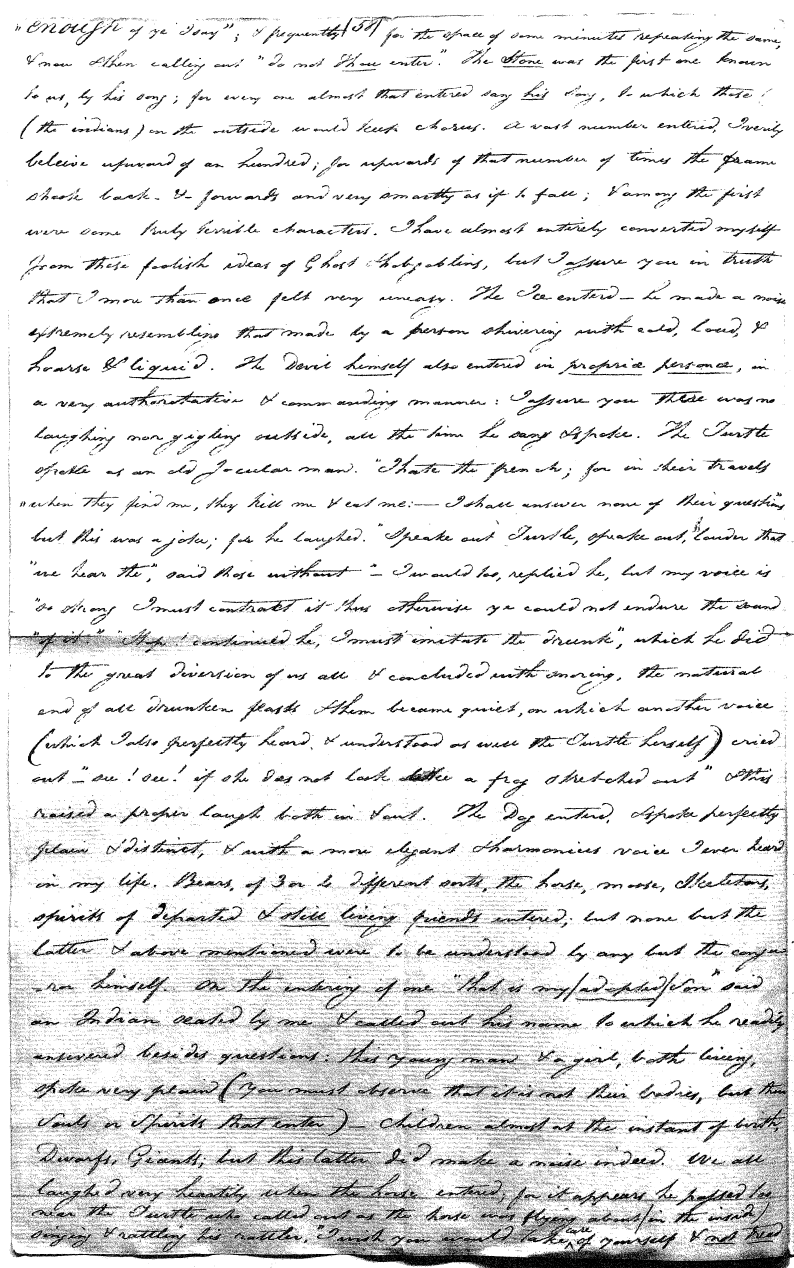 "enough of ye I say"; & frequently (58) for the space of some minutes repeating the same,
& now & then calling out "do not thou enter". The Stone was the first one known
to us, by his song; for every one almost that entered sang his song, to which those
(the indians) on the outside would keep chorus. A vast number entered, I verily
beleive upward of an hundred; for upwards of that number of times the frame
shook back- & -forwards and very smartly as if to fall; & among the first
were some truly terrible characters. I have almost entirely converted myself
from these foolish ideas of Ghost & hobgoblins, but I assure you in truth
that I more than once felt very uneasy. The Ice entered – he made a noise
extremely resembling that made by a person shivering with cold, loud, &
hoarse & liquid. The Devil himself also entered in propriæ personæ, in
a very authoritative & commanding manner: I assure you there was no
laughing nor gigling outside, all the time he sang & spoke. The Turtle
spoke as an old Jocular man. "I hate the french; for in their travels
"when they find me, they kill me & eat me:— I shall answer none of their questions"
but this was a joke; for he laughed. "Speake out Turtle, speake out, louder that
"we hear the", said those without" – I would too, replied he, but my voice is
"so strong I must contrakt it thus otherwise ye could not endure the sound
"of it." "Stop! continued he, I must imitate the drunk", which he did
to the great diversion of us all & concluded with snoring, the natural
end of all drunken feasts & them became quiet, on which another voice
(which I also perfectly heard, & understood as well the Turtle herself) cried
out – "see! see! if she does not look like a frog stretched out" & this
raised a proper laugh both in & out. The Dog entered, & spoke perfectly
plain & distinct, & with a more elegant & harmonious voice I ever heard
in my life. Bears, of 3 or 4 different sorts, the horse, moose, Skeletons,
spirits of departed & still living friends entered; but none but the
latter & above mentioned were to be understood by any but the conju
-ror himself. On the entering of one "that is my (adopted) Son" said
an Indian seated by me & called out his name to which he readily
answered besides questions: this young man & a girl, both living,
spoke very plain (You must observe that it is not their bodies, but their
Souls or Spirits that enter) – Children almost at the instant of birth,
Dwarfs, Giants; but this latter did make a noise indeed. We all
laughed very heartily when the horse entered; for it appears he passed too
near the Turtle who called out as the horse was flying about (in the inside)
singing & rattling his rattler, I wish you would take care of yourself & not tread